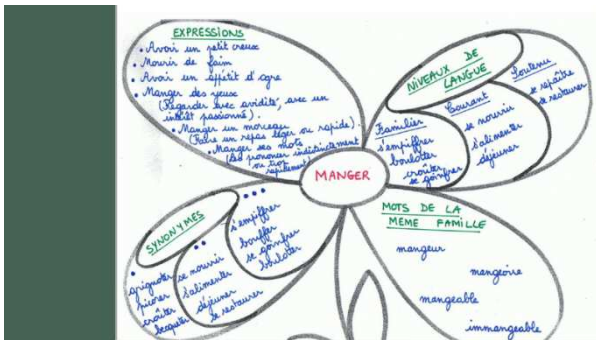 EXPRESSIONS
• Avoir un petit creux
• Mourir de faim
• Avoir un appétit d'ogre
• Manger des yeux
(Regarder avec avidité, avec un
intérêt passionné).
• Manger un morceau
(Faire un repas léger ou rapide).
• Manger ses mots
(Les prononcer indistinctement
ou trop
rapidement)
NIVEAUX DE
LANGUE
Familier
s'empiffrer
boulotter
croûter
se goinfrer
Courant
se nourrir
s'alimenter
déjeuner
Soutenu
se repaître
se restaurer
MANGER
SYNONYMES
•
grignoter
picorer
croûter
becqueter
••
se nourrir
s'alimenter
déjeuner
se restaurer
•••
s'empiffrer
bouffer
se goinfrer
boulotter
MOTS DE LA
MEME FAMILLE
mangeur
mangeoire
mangeable
immangeable